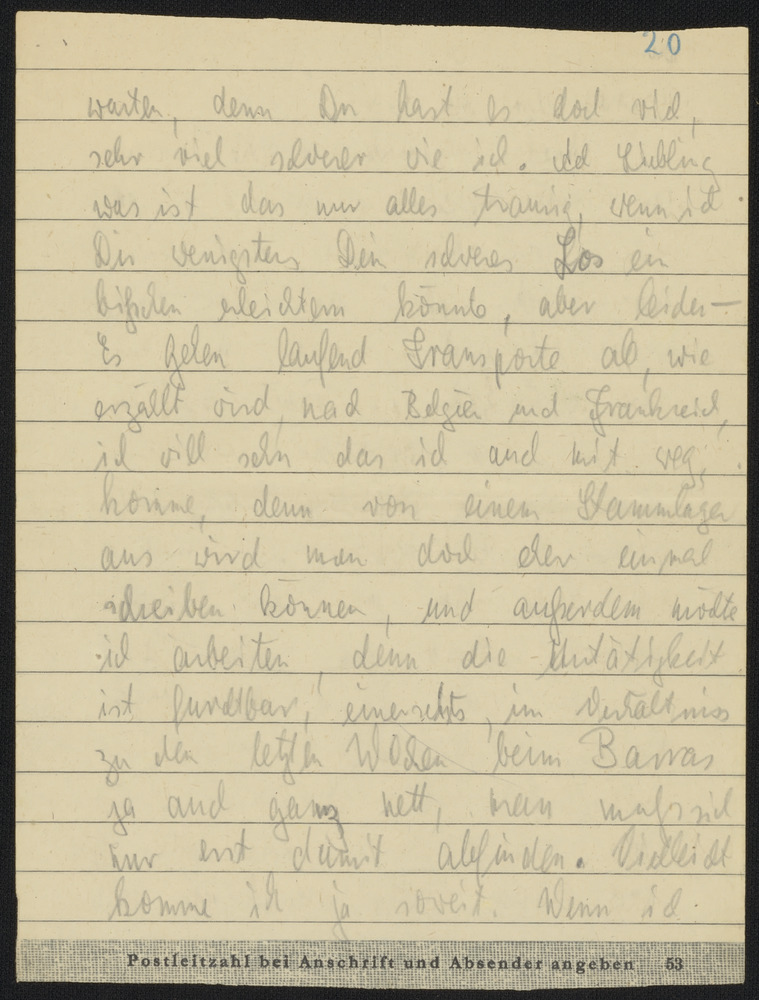 20
warten, denn Du hast es doch viel,
sehr viel schwerer wie ich. Ach Liebling
was ist das nur alles traurig, wenn ich
Dir wenigstens Dein schweres Los ein
bißchen erleichtern könnte, aber leider—
Es gehen laufend Transporte ab, wie
erzählt wird, nach Belgien und Frankreich,
ich will sehn das ich auch mit weg,
komme, denn von einem Stammlager
aus wird man doch eher einmal
schreiben können, und außerdem möchte
ich arbeiten, denn die Untätigkeit
ist furchtbar, einerseits, im Verhältniss
zu den letzten Wochen beim Barras
ja auch ganz nett, man muß sich
nur erst damit abfinden. Vielleicht
komme ich ja soweit. Wenn ich
Postleitzahl bei Anschrift und Absender angeben 53